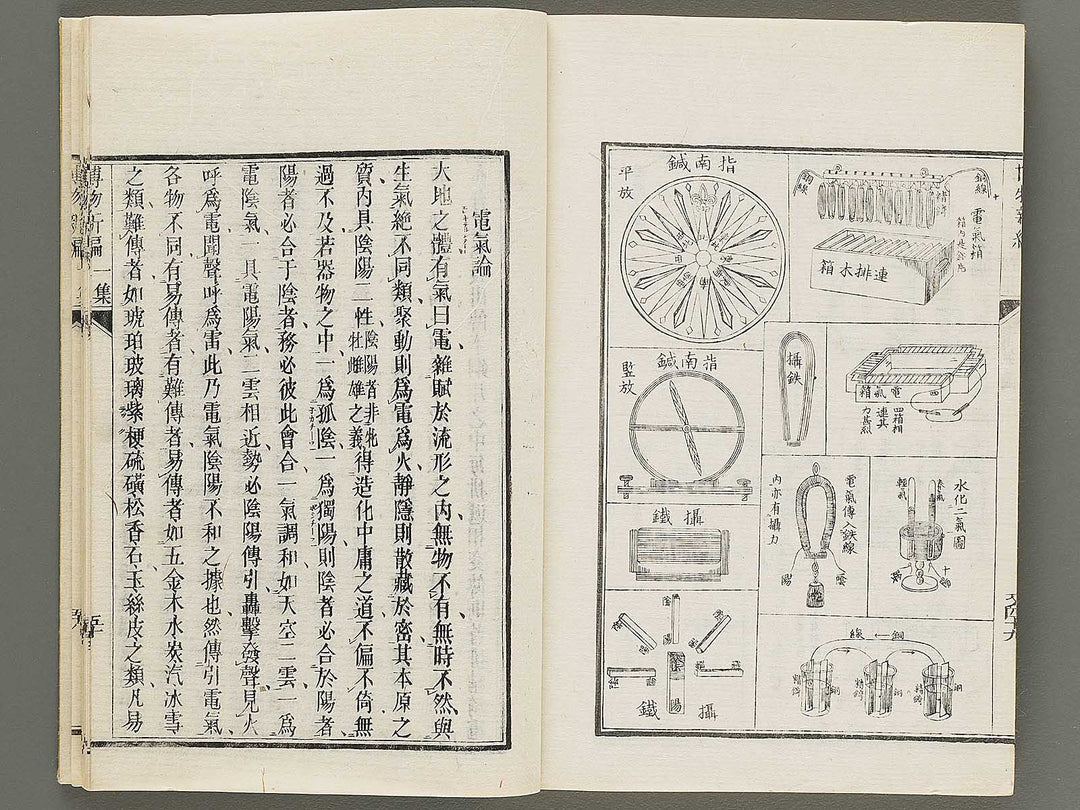 指南鍼
平放
銅線
銅線
精錡
電氣箱
連排木箱
指南鍼
監放
攝鉄
電氣箱
四箱相
連其
力甚烈
攝鐵
電氣傳入鉄線
內亦有攝力
陽
陰
水化二氣圖
養氣
輕氣
銅
陰
陽
攝鐵
銅線
銅
精錡
銅
精錡
銅
精錡
電氣論
大地之體有氣曰電雜賦於流形之內無物不有無時不然與
生氣絶不同類聚動則爲電爲火靜隱則散藏於密其本原之
質內具陰陽二性陰陽者非牝牡雌雄之義得造化中庸之道不偏不倚無
過不及若器物之中一爲孤陰一爲獨陽則陰者必合於陽者
陽者必合于陰者務必彼此會合一氣調和如天空二雲一爲
電陰氣一具電陽氣二雲相近勢必陰陽傳引轟擊發聲見火
呼爲電聞聲呼爲雷此乃電氣陰陽不和之據也然傳引電氣
各物不同有易傳者有難傳者易傳者如五金木水炭汽冰雪
之類難傳者如琥珀玻璃紫梗硫磺松香石玉絲皮之類凡易
博物新編
一集